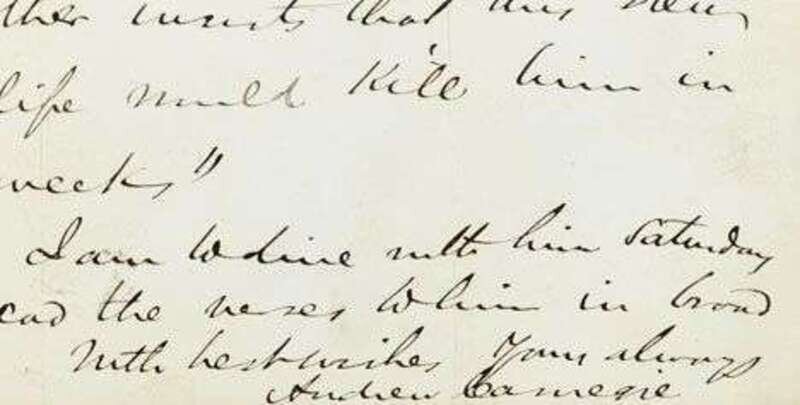 ther insists that this
life would kill him in
weeks"
I am to dine with him Saturday
ead the verses to him in broad
With best wishes Yours always
Andrew Carnegie